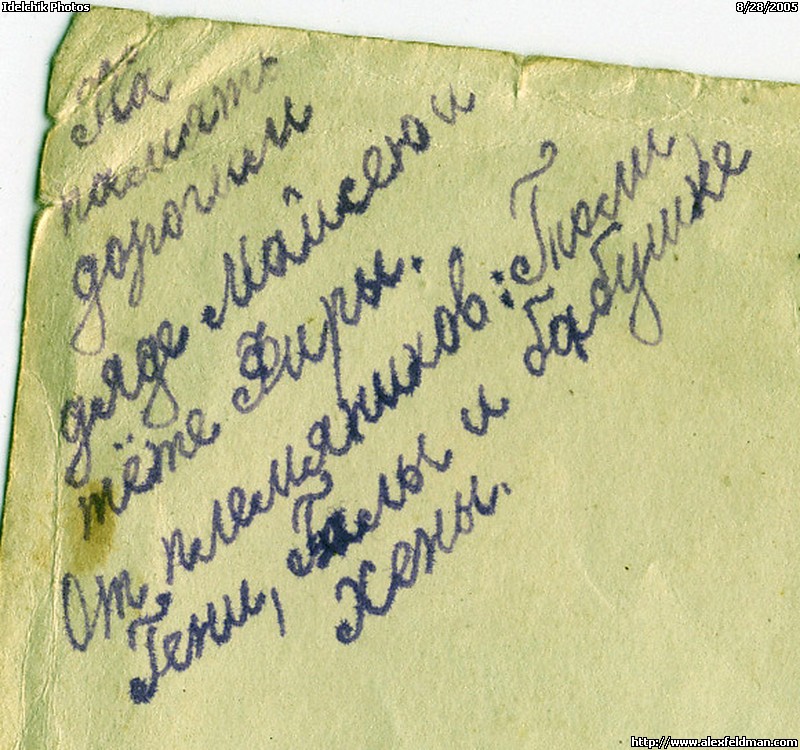 Idelchik Photos
8/28/2005
На
память
дорогим
дяде Майсею и
тёте Фиры.
От племяников:
Гени, Галы и бабушке
Хены.
http://www.alexfeldman.com